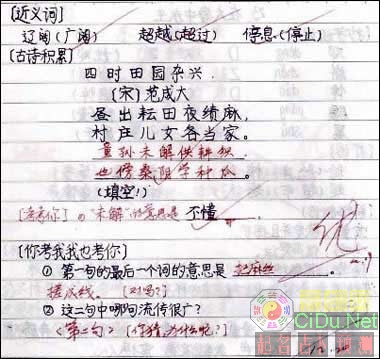 [近义词]
辽阔(广阔) 超越(超过) 停息(停止)
[古诗积累]
四时田园杂兴
[宋]范成大
昼出耘田夜绩麻,
村庄儿女各当家。
童孙未解供耕织
也傍桑阴学种瓜。
(填空!)
[考考你]①"未解"的意思是 不懂
[你考我我也考你]
① 第一句的最后一个词的意思是 把麻丝
搓成线。 (对吗?)
② 这二句中哪句流传很广?
(第二句) [你猜,为什么呢?]
优
CiDu.Net